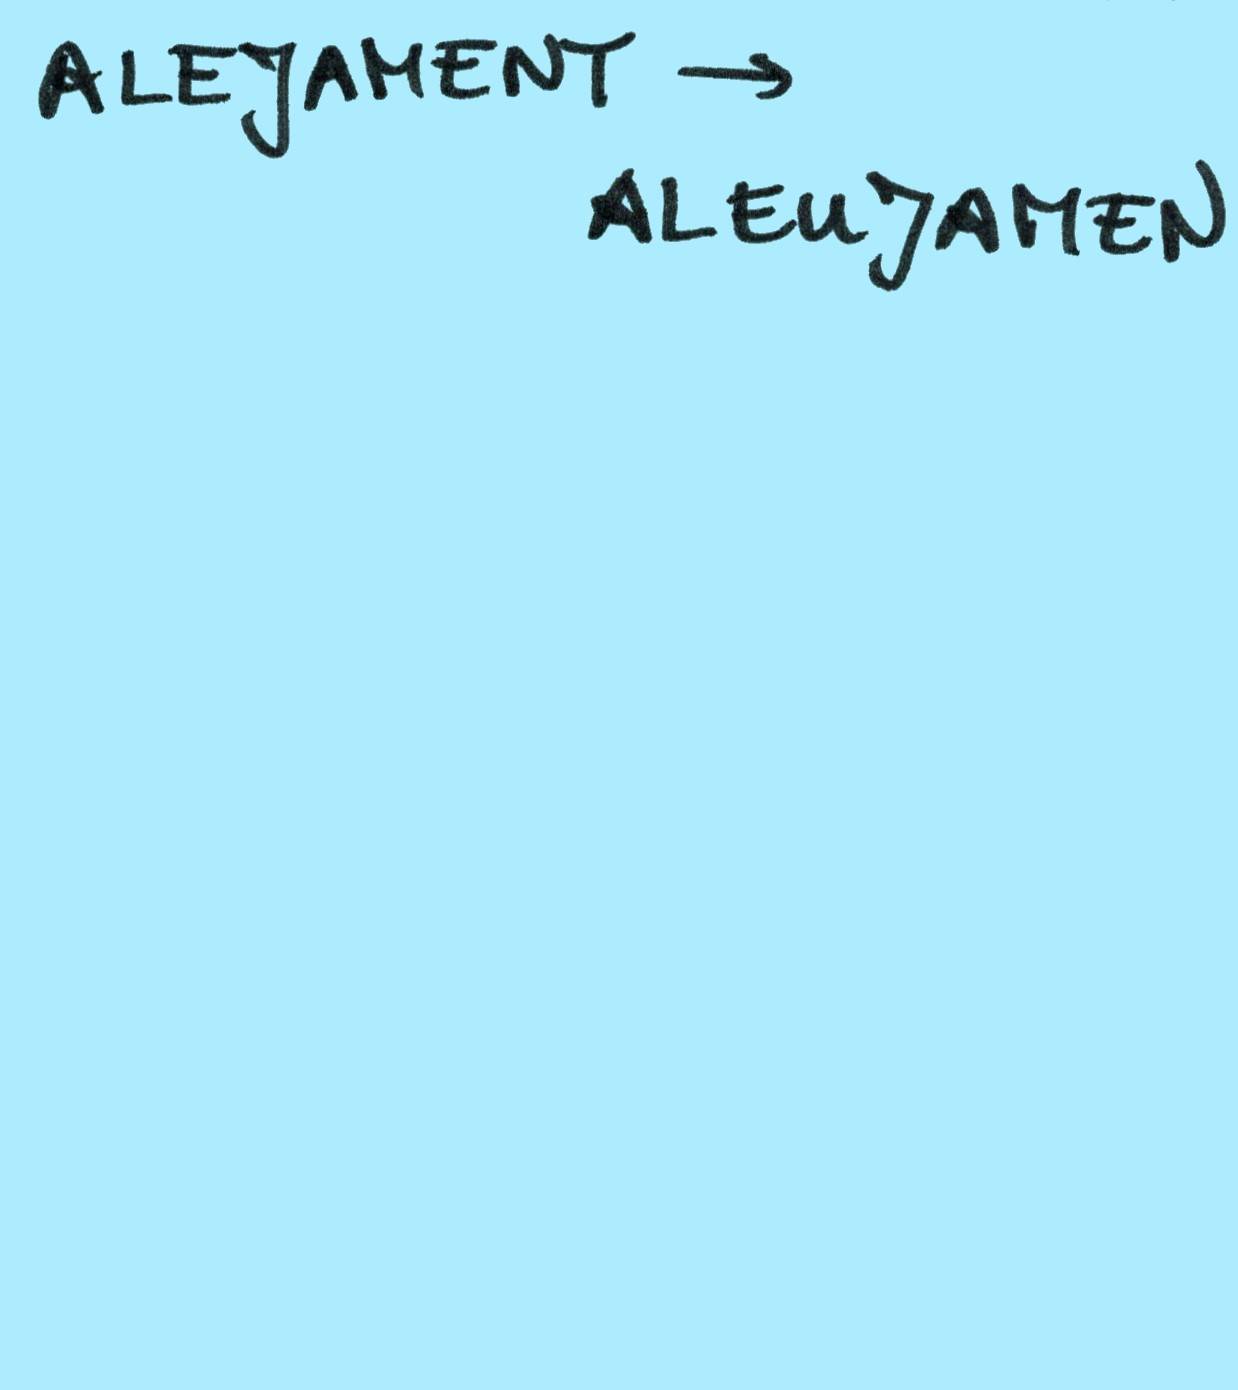 ALEJAMENT →
ALEUJAMEN